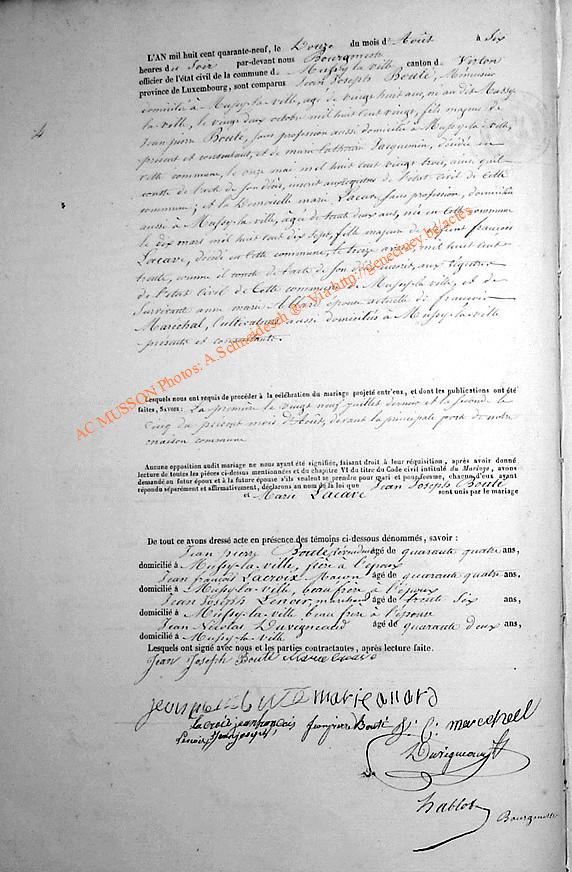 L'AN mil huit cent quarante-neuf, le Douze du mois d'Août à Six
heures du Soir par-devant nous Bourgmestre
officier de l'état civil de la commune d Mussy-la-ville canton d Virton
province de Luxembourg, sont comparus Jean Joseph Bouté, Menuisier
domicilié à Mussy-la-ville, agé de vingt huit ans, né au dit Mussy-
la-ville, le vingt deux octobre mil huit cent vingt, fils majeur de
Jean pierre Bouté, sans profession aussi domicilié à Mussy-la-ville,
présent et consentant, et de marie Catherine Jacquemin, décédée en
cette commune, le onze mai mil huit cent vingt trois, ainsi qu'il
conste de l'acte de son décès, inscrit aux registres de l'état civil de Cette
commune; et la Demoiselle marie Lacave, sans profession, domiciliée
aussi à Mussy-la-ville, agée de trente deux ans, née en Cette commune
le dix mars mil huit cent dix sept, fille majeure de françois
Lacave, décédé en Cette commune, le treize mil huit cent
trente, comme il conste de l'acte de son décès inscrit aux registres
de l'état Civil de Cette commune de Mussy-la-ville, et de
Survivante anne marie épouse actuelle de françois
Maréchal, Cultivateurs aussi domiciliés à Mussy-la-ville
présents et consentants.
Lesquels nous ont requis de procéder à la célébration du mariage projeté entr'eux, et dont les publications ont été
faites, SAVOIR: La première le vingt neuf juillet dernier et la seconde le
Cinq du présent mois d'Août, devant la principale porte de notre
maison commune
Aucune opposition audit mariage ne nous ayant été signifiée, faisant droit à leur réquisition, après avoir donné
lecture de toutes les pièces ci-dessus mentionnées et du chapitre VI du titre du Code civil intitulé du Mariage, avons
demandé au futur époux et à la future épouse s'ils veulent se prendre pour mari et pour femme, chacun d'eux ayant
répondu séparément et affirmativement, déclarons au nom de la loi que Jean Joseph Bouté
et Marie Lacave sont unis par le mariage
De tout ce avons dressé acte en présence des témoins ci-dessous dénommés, savoir :
Jean pierre Bouté âgé de quarante quatre ans,
domicilié à Mussy-la-ville, frère à l'époux
Jean françois Lacroix Maçon âgé de quarante quatre ans,
domicilié à Mussy-la-ville, beau frère à l'époux
Jean Joseph Lenoir marchand âgé de trente Six ans,
domicilié à Mussy-la-ville beau frère à l'épouse
Jean Nicolas Duvigneaud âgé de quarante deux ans,
domicilié à Mussy-la-ville
Lesquels ont signé avec nous et les parties contractantes, après lecture faite.
Jean Joseph Bouté Marie
marie
Lacroix jean francois Jean pierre Bouté marechall
Lenoir Jean joseph
Duvigneaud
hablot
Bourgmestre
AC MUSSON Photos: A.Schneidesch ®- Via http://genediney.be/actes